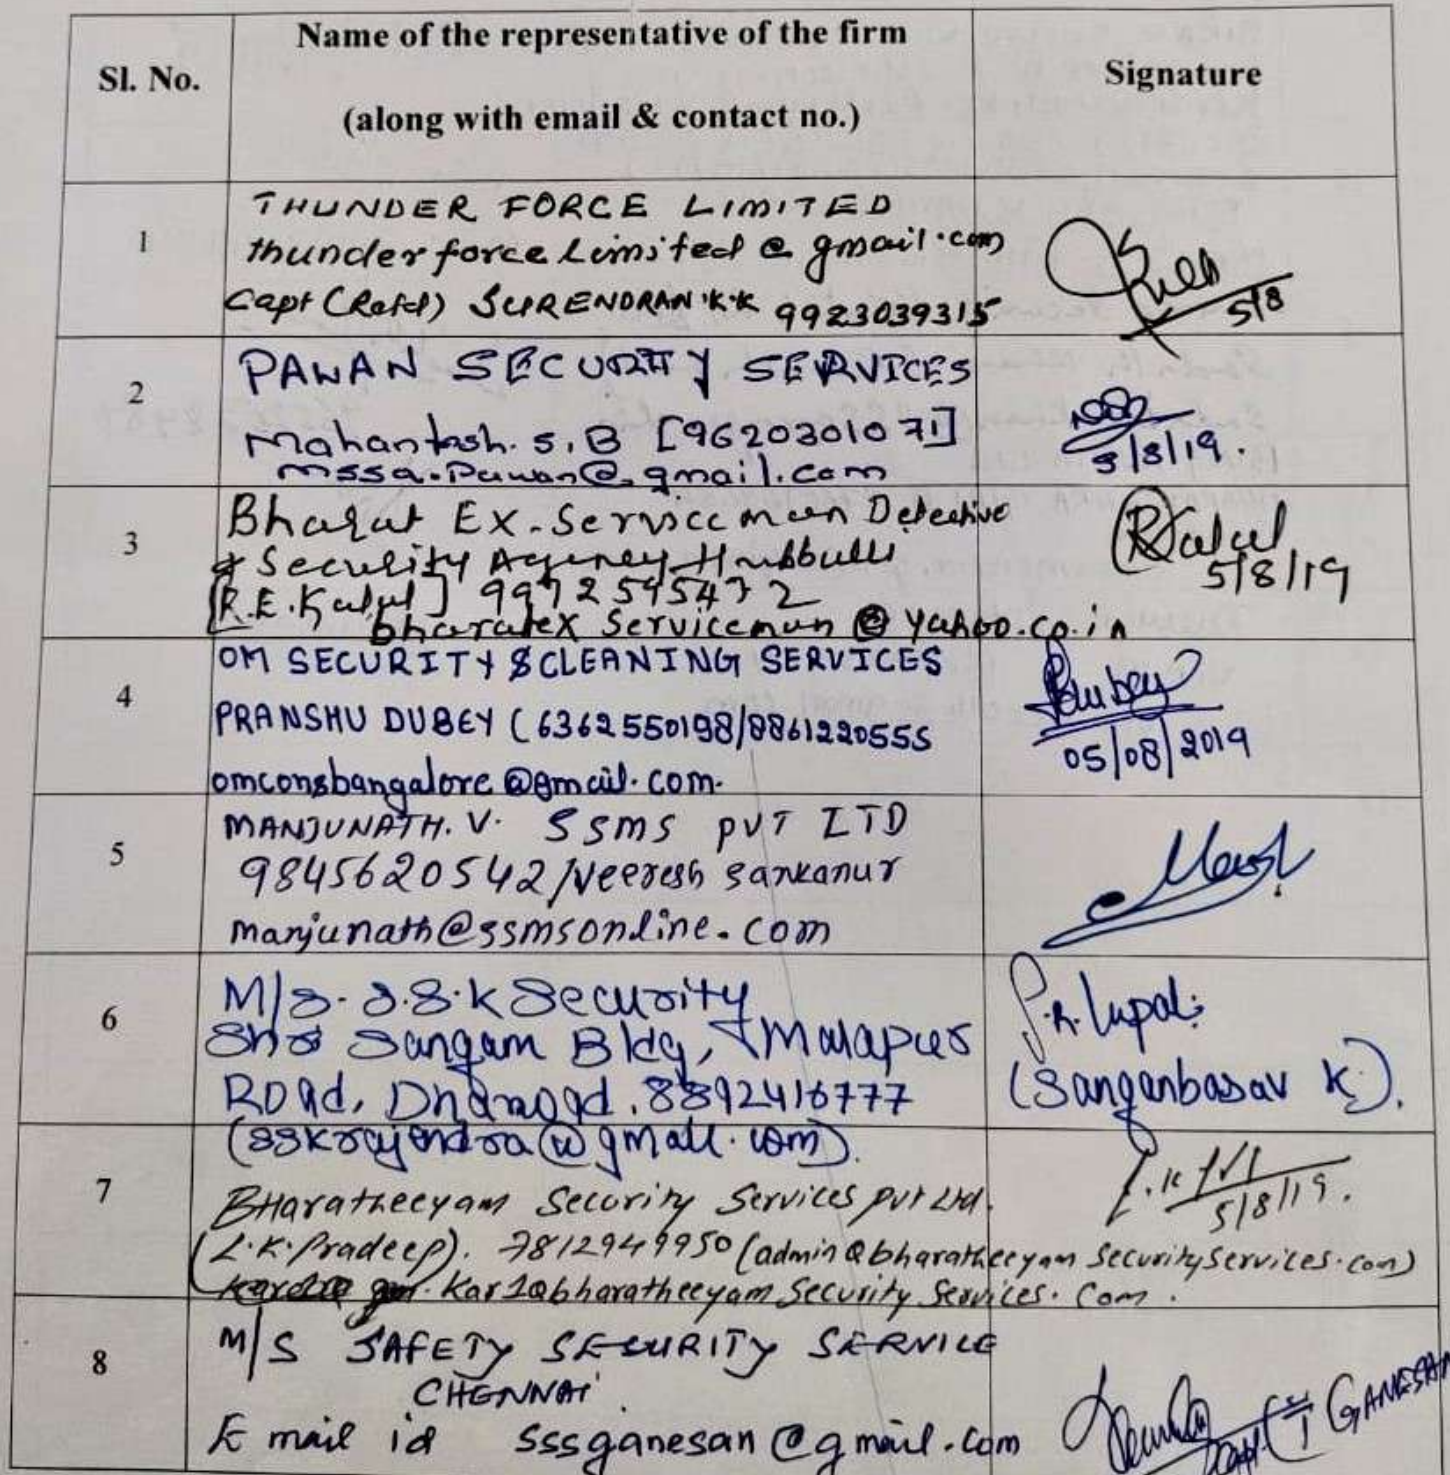 Sl. No.
Name of the representative of the firm
(along with email & contact no.)
Signature
1
THUNDER FORCE LIMITED
thunderforceLimited@gmail.com
Capt (Retd) SURENDRAN K.K 9923039315
5/8
2
PAWAN SECURITY SERVICES
Mahantesh.S.B [9620301071]
mssa.Pawan@gmail.com
5/8/19.
3
Bharat Ex-Servicemen Detective
& Security Agency Hubballi
[R.E. ] 9972595472
bharatex Serviceman@yahoo.co.in
5/8/19
4
OM SECURITY & CLEANING SERVICES
PRANSHU DUBEY (6362550198/8861220555
omconsbangalore@gmail.com.
Dubey
05/08/2019
5
MANJUNATH.V. SSMS PVT LTD
9845620542/Veeresh Sankanur
manjunath@ssmsonline.com
6
M/S. S.S.K Security
Sangam Bldg, Malapur
Road, Dharwad. 8892416777
(sskrajendra@gmail.com).
(Sanganbasav K).
7
Bharatheeyam Security Services Pvt Ltd.
(L.K.Pradeep). 7812949950 (admin@bharatheeyamSecurityServices.com)
Kar1@bharatheeyamSecurityServices.Com.
5/8/19.
8
M/S SAFETY SECURITY SERVICE
CHENNAI
E mail id sssganesan@gmail.com
GANESAN